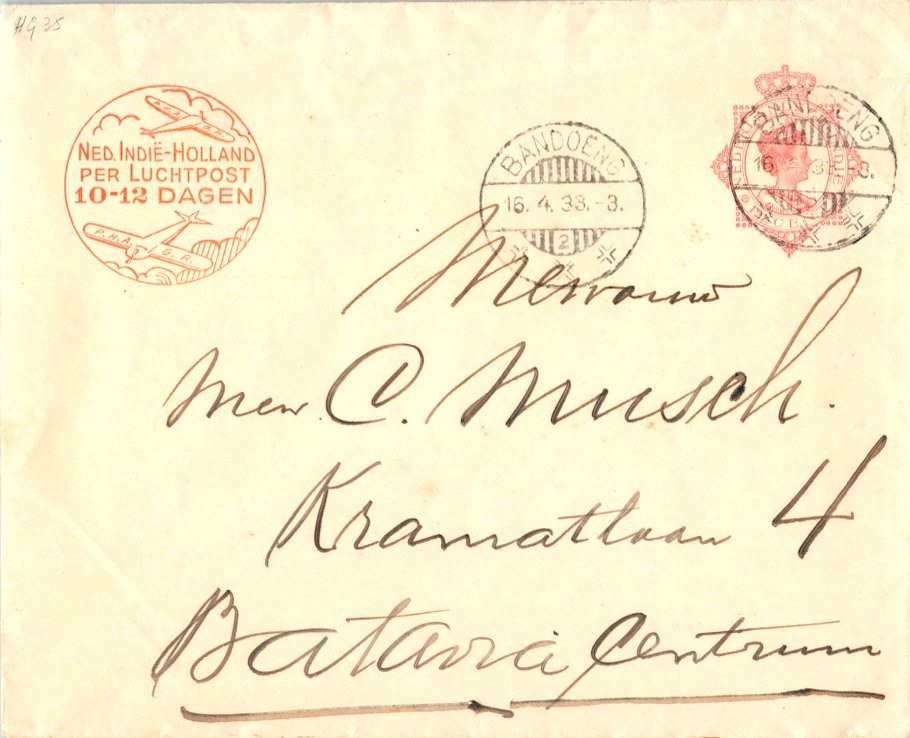 HG 35
NED. INDIË-HOLLAND
PER LUCHTPOST
10-12 DAGEN
BANDOENG
16. 4. 33.-3.
2
BANDOENG
Mevrouw
Mevr. C. Musch.
Kramatlaan 4
Batavia Centrum